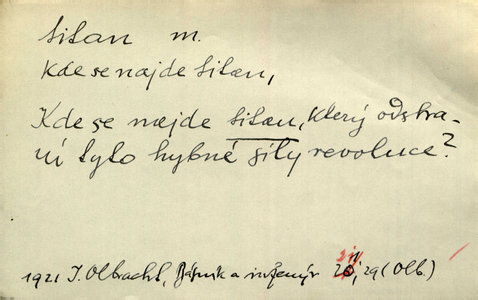 titan m.
Kde se najde titan,
Kde se najde titan, který odstra-
ní tyto hybné síly revoluce?
1921 I. Olbracht, Básník a inženýr 29 (Olb.)